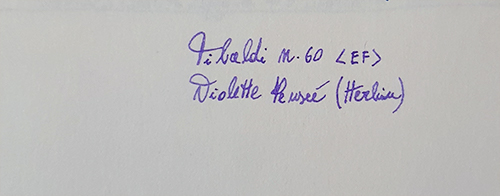 Tibaldi N.60 <EF>
Violette Pensée (Herbin)